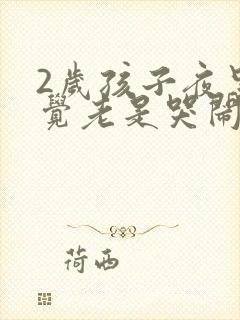 2歲孩子夜里
覺老是哭鬧
荷西